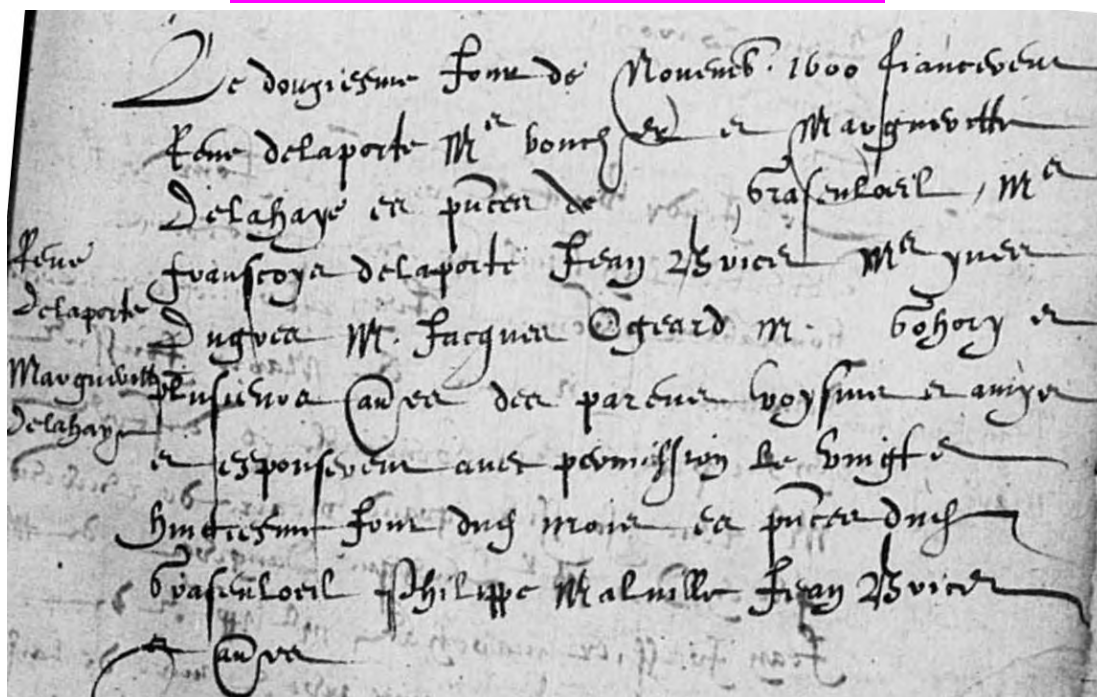 Le douziesme Jour de Novemb. 1600 fiancerent
Rene delaporte Mr bouch er et Margueritte
Delahaye es pnces de Grasenloeil, Mr
Franscoys delaporte Jean Brices Mr yves
Dugves M. Jacques Ogeard M. Gohory et
plusieurs aues des parens voysins et amys
et espouserent avec permission le vingt e
huictiesme Jour dud mois es pnces dud
Grasenloeil Philippe Malville Jean Brices
et aues
Rene
delaporte
Margueritte
delahaye